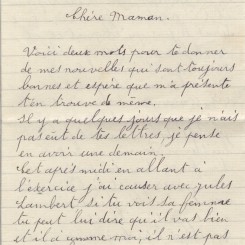 Chère Maman.
Voici deux mots pour te donner
de mes nouvelles qui sont toujours
bonnes et espere que m'a presente
t'en trouve de même.
Il y a quelques jours que je n'ais
pas eût de tes lettres, je pense
en avoir une demain.
Cet après midi en allant à
l'exercice j'ai causer avec jules
Lambert si tu vois sa femme
tu peut lui dire qu'il vas bien
et il à comme moi, il n'est pas